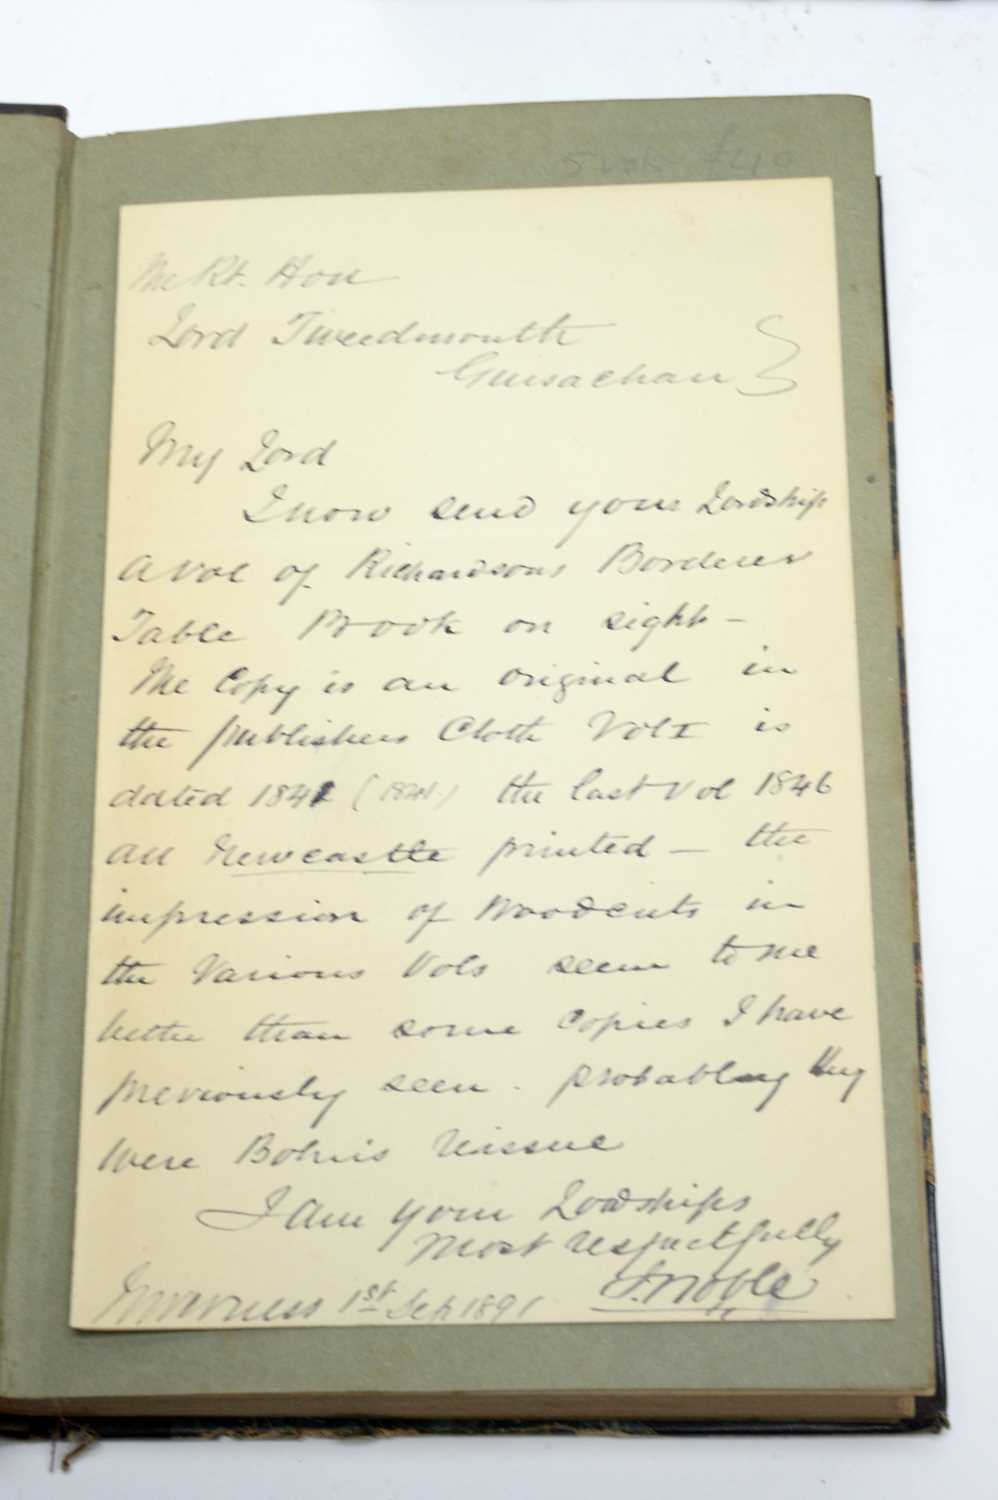 5 vols £40
The Rt. Hon
Lord Tweedmouth
Guisachan }
My Lord
I now send your Lordship
a vol of Richardsons Borderer
Table Book on sight –
The Copy is an original in
the publishers Cloth Vol I is
dated 1841 (1841.) the last vol 1846
all Newcastle printed – the
impression of Woodcuts in
the various Vols seem to me
better than some copies I have
previously seen. probably they
were Bohn's reissue
I am your Lordships
most respectfully
J. Noble
Inverness 1st Sep 1891